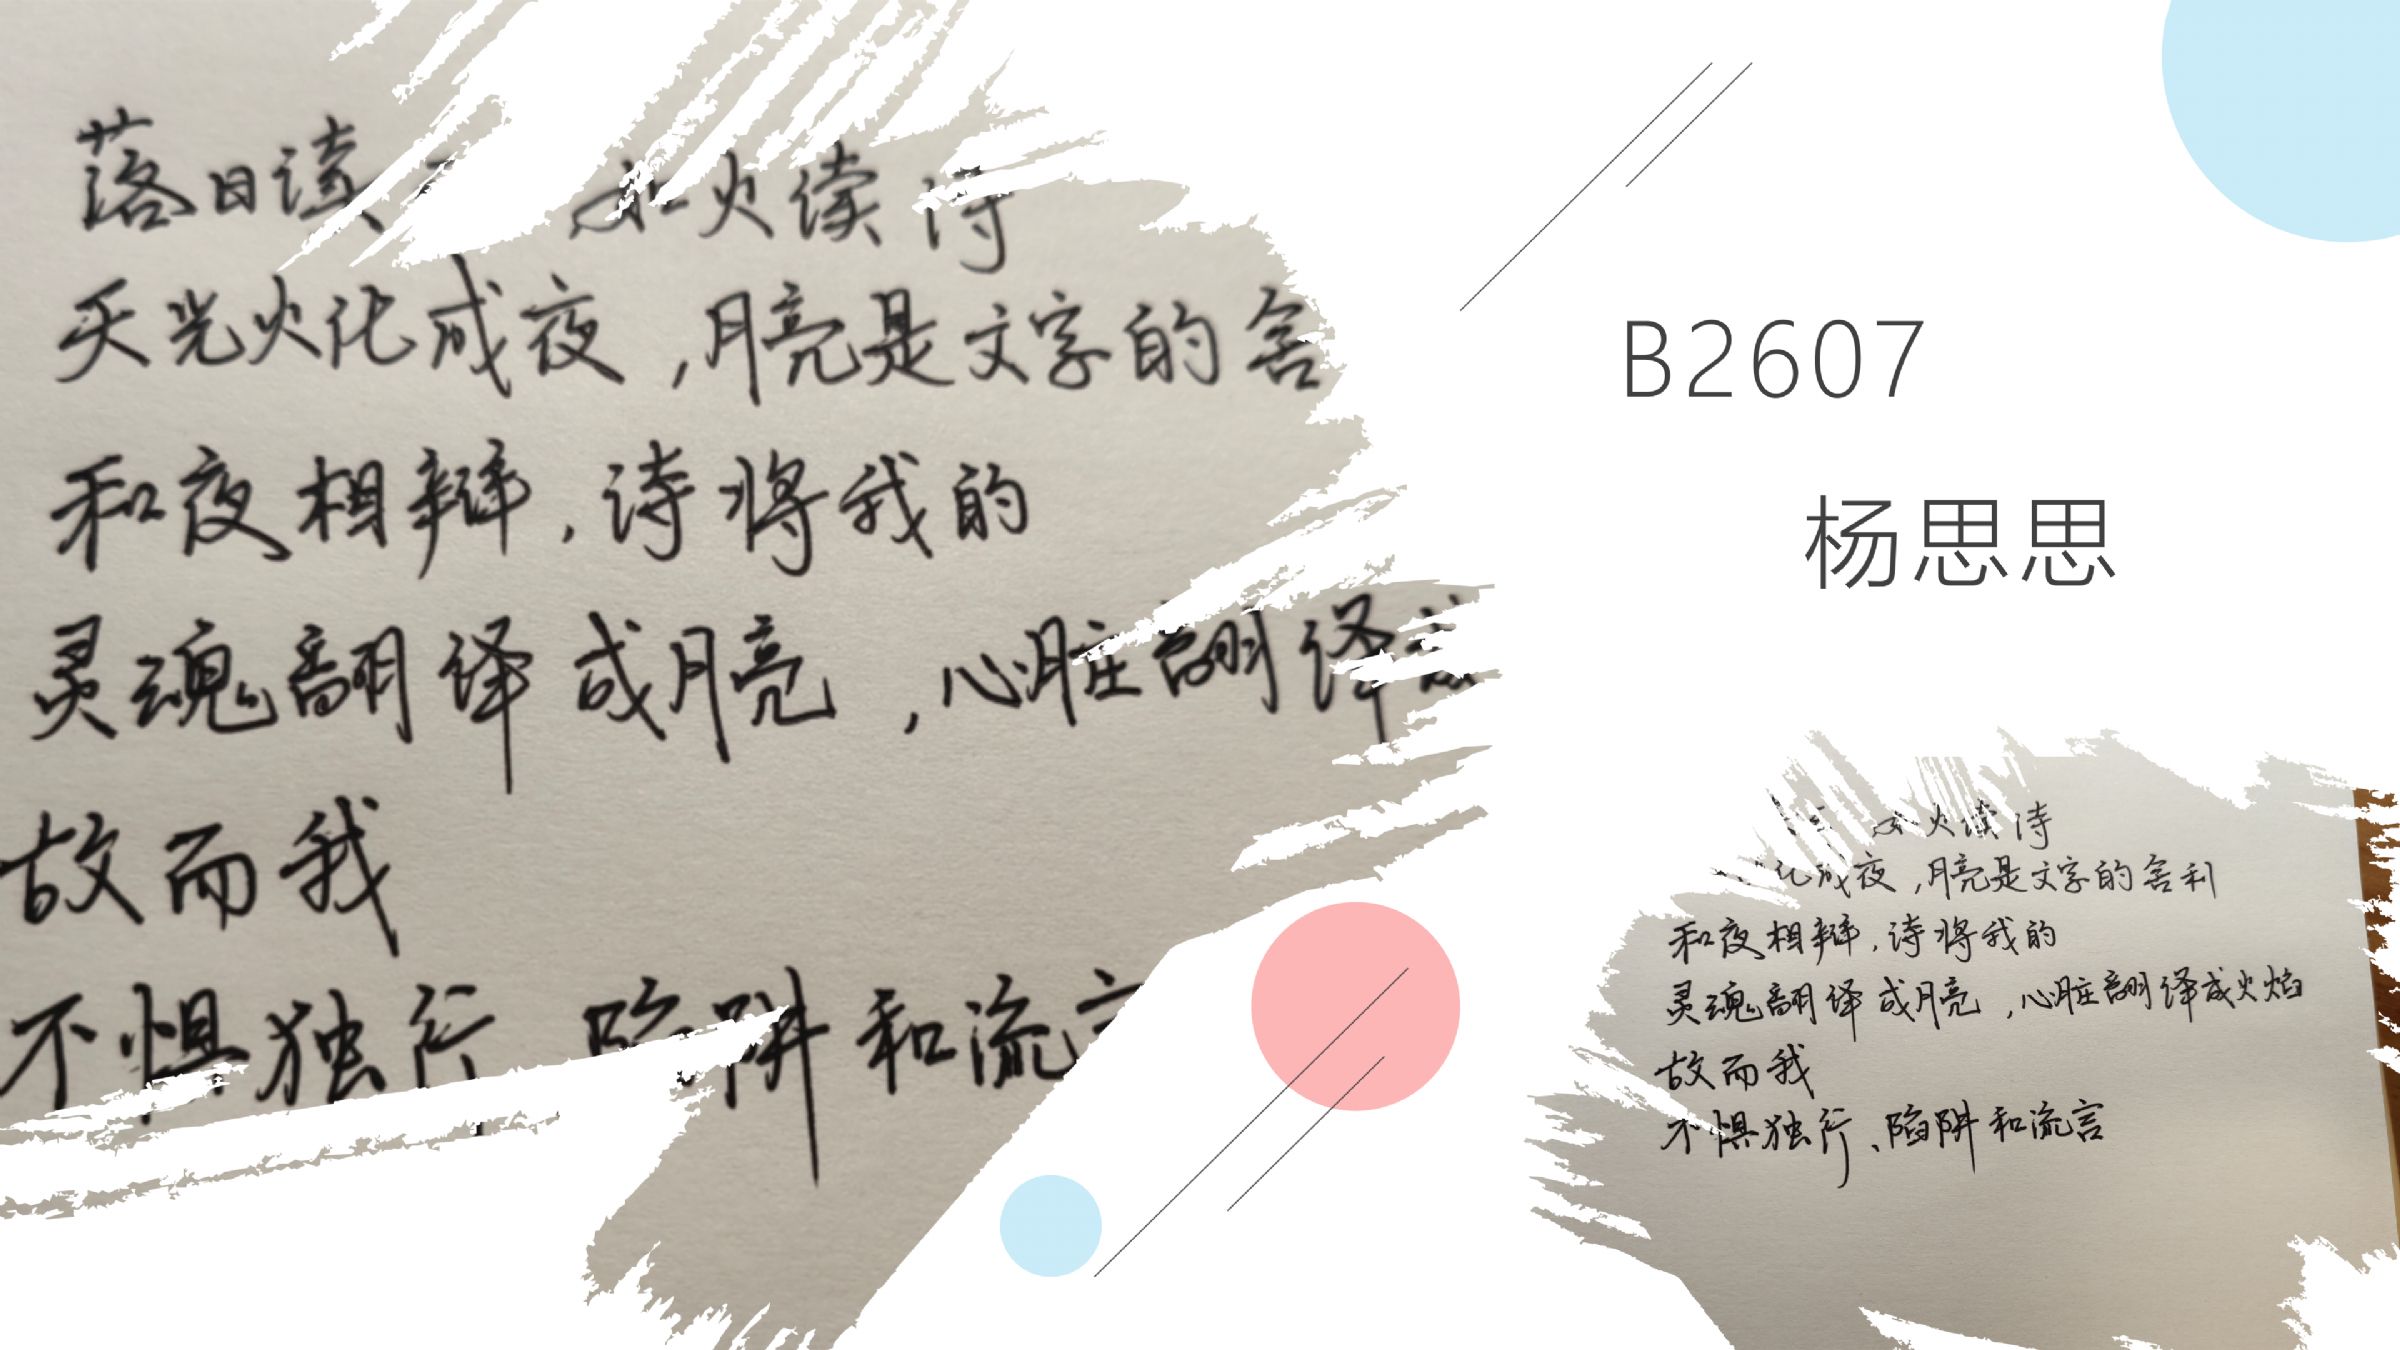 落日读 火续诗
天光火化成夜，月亮是文字的舍
和夜相辩，诗将我的
灵魂翻译成月亮，心脏翻译
故而我
不惧独行 陷阱和流言
B2607
杨思思
火续诗
化成夜，月亮是文字的舍利
和夜相辩，诗将我的
灵魂翻译成月亮，心脏翻译成火焰
故而我
不惧独行、陷阱和流言